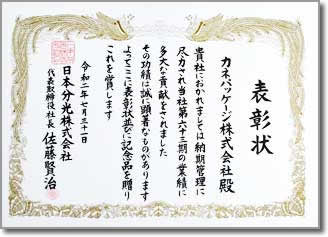 表彰状
カネパッケージ株式会社殿
貴社におかれましては納期管理に
尽力され当社第六十二期の業績に
多大な貢献をされました
その功績は誠に顕著なものがあります
よってここに表彰状並びに記念品を贈り
これを賞します
令和二年七月三十一日
日本分光株式会社
代表取締役社長 佐藤賢治